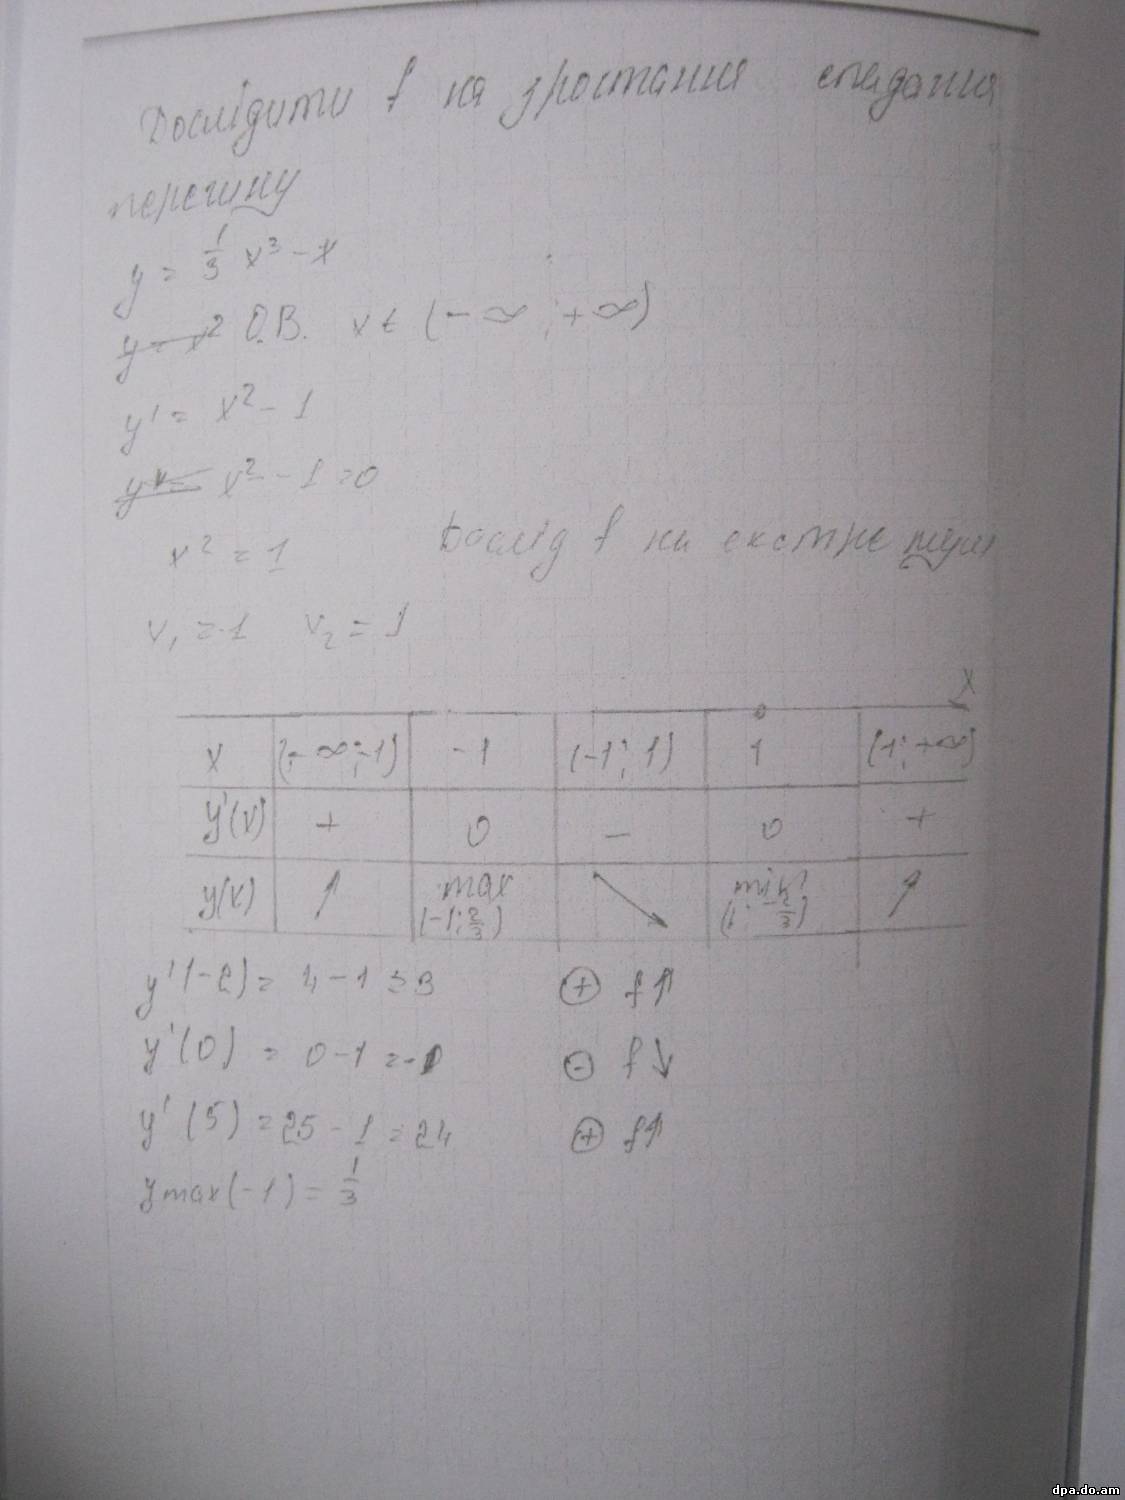 Дослідити f на зростання спадання
перегину
y = 1/3 x³ - x
y = x² О.В. x ∈ (-∞ ; +∞)
y' = x² - 1
x² - 1 = 0
x² = 1
Дослід f на екстремум
x₁ = -1 x₂ = 1
x
x (-∞; -1) -1 (-1; 1) 1 (1; +∞)
y'(x) + 0 - 0 +
y(x) ↗ max (-1; 2/3) ↘ min (1; -2/3) ↗
y'(-2) = 4 - 1 = 3 ⊕ f↑
y'(0) = 0 - 1 = -1 ⊖ f↓
y'(5) = 25 - 1 = 24 ⊕ f↑
y max(-1) = 1/3
dpa.do.am